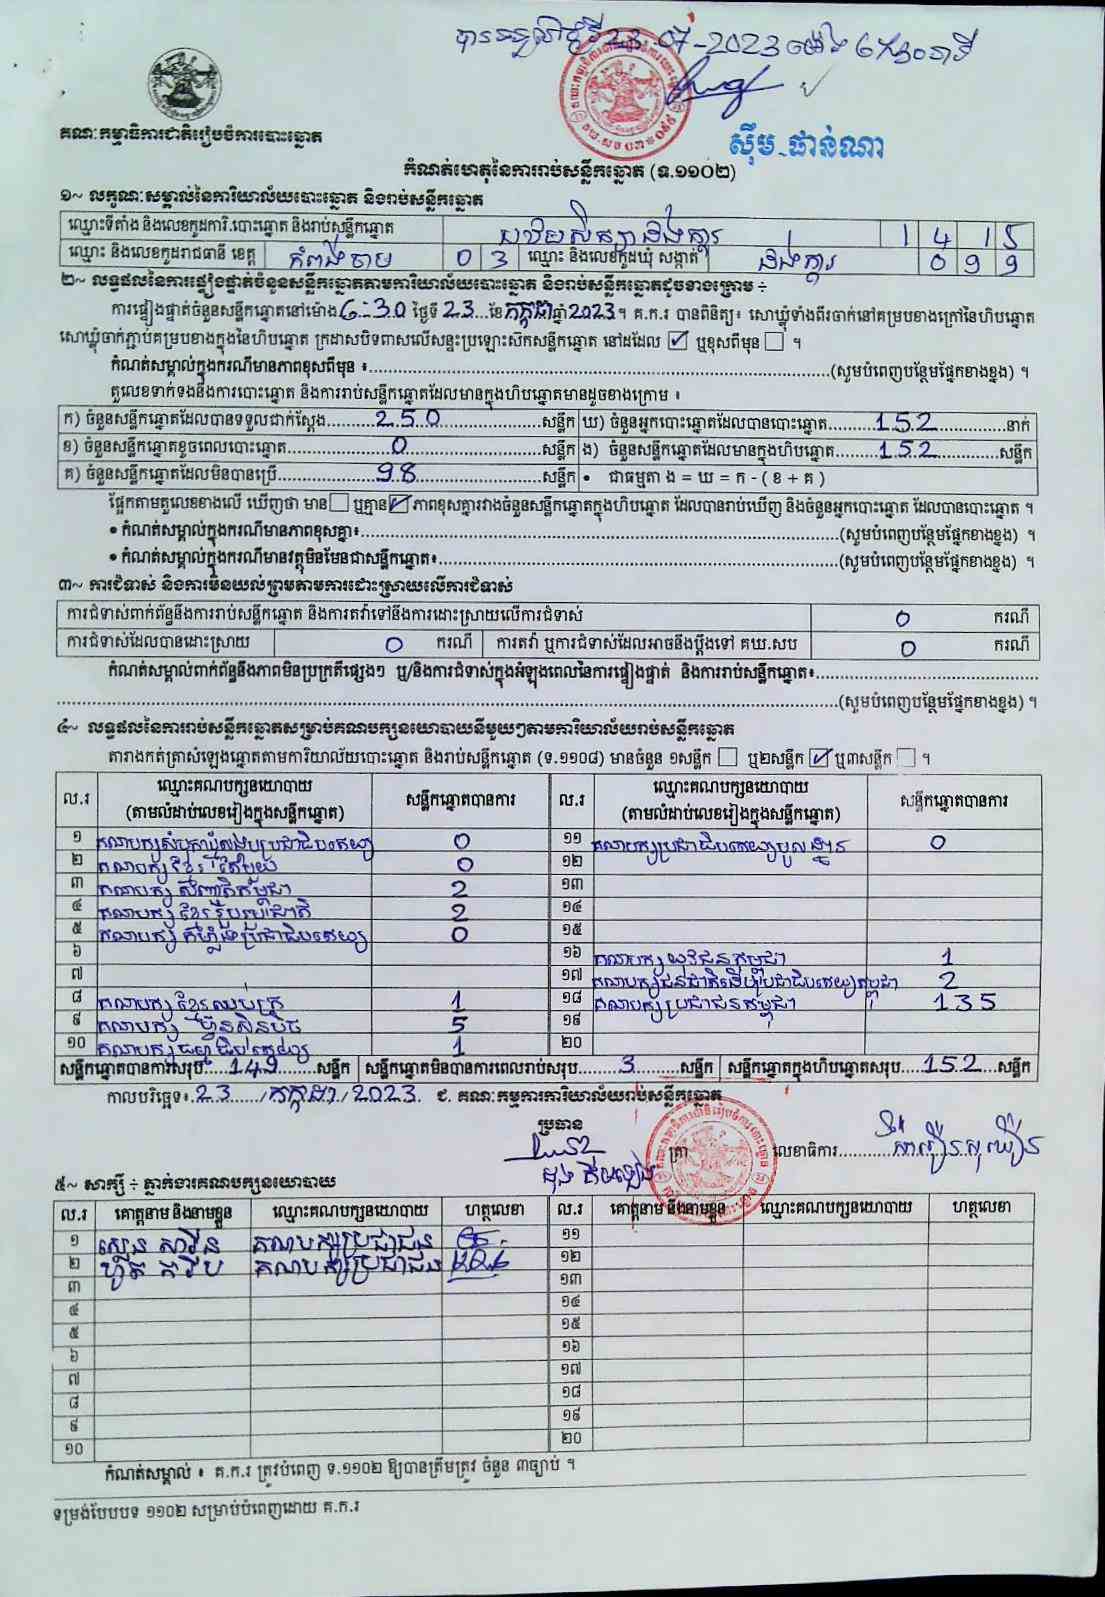 បានទទួលថ្ងៃទី23-07-2023 ម៉ោង
គណៈកម្មាធិការជាតិរៀបចំការបោះឆ្នោត
ស៊ឹម ផាន់ណា
កំណត់ហេតុនៃការរាប់សន្លឹកឆ្នោត (ទ.១១០២)
១~ លក្ខណៈសម្គាល់នៃការិយាល័យបោះឆ្នោត និងរាប់សន្លឹកឆ្នោត
ឈ្មោះទីតាំង និងលេខកូដការិ.បោះឆ្នោត និងរាប់សន្លឹកឆ្នោត បឋមសិក្សាដងក្តារ 1 1 4 1 5
ឈ្មោះ និងលេខកូដរាជធានី ខេត្ត កំពង់ចាម 0 3 ឈ្មោះ និងលេខកូដឃុំ សង្កាត់ ដងក្តារ 0 9 9
២~ លទ្ធផលនៃការផ្ទៀងផ្ទាត់ចំនួនសន្លឹកឆ្នោតតាមការិយាល័យបោះឆ្នោត និងរាប់សន្លឹកឆ្នោតដូចខាងក្រោម ÷
ការផ្ទៀងផ្ទាត់ចំនួនសន្លឹកឆ្នោតនៅម៉ោង 6-30 ថ្ងៃទី 23 ខែកក្កដាឆ្នាំ2023។ គ.ក.រ បានពិនិត្យ៖ សោឃ្លុំទាំងពីរចាក់នៅគម្របខាងក្រៅនៃហិបឆ្នោត
សោឃ្លុំចាក់ភ្ជាប់គម្របខាងក្នុងនៃហិបឆ្នោត ក្រដាសបិទពាសលើសន្ទះប្រឡោះស៊កសន្លឹកឆ្នោត នៅដដែល ☑ ឬខុសពីមុន ☐ ។
កំណត់សម្គាល់ក្នុងករណីមានភាពខុសពីមុន ៖ (សូមបំពេញបន្ថែមផ្នែកខាងខ្នង) ។
តួលេខទាក់ទងនឹងការបោះឆ្នោត និងការរាប់សន្លឹកឆ្នោតដែលមានក្នុងហិបឆ្នោតមានដូចខាងក្រោម ៖
ក) ចំនួនសន្លឹកឆ្នោតដែលបានទទួលជាក់ស្តែង 250 សន្លឹក ឃ) ចំនួនអ្នកបោះឆ្នោតដែលបានបោះឆ្នោត 152 នាក់
ខ) ចំនួនសន្លឹកឆ្នោតខូចពេលបោះឆ្នោត 0 សន្លឹក ង) ចំនួនសន្លឹកឆ្នោតដែលមានក្នុងហិបឆ្នោត 152 សន្លឹក
គ) ចំនួនសន្លឹកឆ្នោតដែលមិនបានប្រើ 98 សន្លឹក • ជាធម្មតា ង = ឃ = ក - ( ខ + គ )
ផ្អែកតាមតួលេខខាងលើ ឃើញថា មាន ☐ ឬគ្មាន ☑ ភាពខុសគ្នារវាងចំនួនសន្លឹកឆ្នោតក្នុងហិបឆ្នោត ដែលបានរាប់ឃើញ និងចំនួនអ្នកបោះឆ្នោត ដែលបានបោះឆ្នោត ។
• កំណត់សម្គាល់ក្នុងករណីមានភាពខុសគ្នា៖ (សូមបំពេញបន្ថែមផ្នែកខាងខ្នង) ។
• កំណត់សម្គាល់ក្នុងករណីមានវត្ថុមិនមែនជាសន្លឹកឆ្នោត៖ (សូមបំពេញបន្ថែមផ្នែកខាងខ្នង) ។
៣~ ការជំទាស់ និងការមិនយល់ព្រមតាមការដោះស្រាយលើការជំទាស់
ការជំទាស់ពាក់ព័ន្ធនឹងការរាប់សន្លឹកឆ្នោត និងការតវ៉ាទៅនឹងការដោះស្រាយលើការជំទាស់ 0 ករណី
ការជំទាស់ដែលបានដោះស្រាយ 0 ករណី ការតវ៉ា ឬការជំទាស់ដែលអាចនឹងប្តឹងទៅ គឃ.សប 0 ករណី
កំណត់សម្គាល់ពាក់ព័ន្ធនឹងភាពមិនប្រក្រតីផ្សេងៗ ឬ/និងការជំទាស់ក្នុងអំឡុងពេលនៃការផ្ទៀងផ្ទាត់ និងការរាប់សន្លឹកឆ្នោត៖
(សូមបំពេញបន្ថែមផ្នែកខាងខ្នង) ។
៤~ លទ្ធផលនៃការរាប់សន្លឹកឆ្នោតសម្រាប់គណបក្សនយោបាយនីមួយៗតាមការិយាល័យរាប់សន្លឹកឆ្នោត
តារាងកត់ត្រាសំឡេងឆ្នោតតាមការិយាល័យបោះឆ្នោត និងរាប់សន្លឹកឆ្នោត (ទ.១១០៨) មានចំនួន ១សន្លឹក ☐ ឬ២សន្លឹក ☑ ឬ៣សន្លឹក ☐ ។
ល.រ ឈ្មោះគណបក្សនយោបាយ (តាមលំដាប់លេខរៀងក្នុងសន្លឹកឆ្នោត) សន្លឹកឆ្នោតបានការ ល.រ ឈ្មោះគណបក្សនយោបាយ (តាមលំដាប់លេខរៀងក្នុងសន្លឹកឆ្នោត) សន្លឹកឆ្នោតបានការ
១ គណបក្សសំបុកឃ្មុំសង្គមប្រជាធិបតេយ្យ 0 ១១ គណបក្សប្រជាធិបតេយ្យមូលដ្ឋាន 0
២ គណបក្ស ខ្មែរតែមួយ 0 ១២
៣ គណបក្ស សញ្ជាតិកម្ពុជា 2 ១៣
៤ គណបក្ស ខ្មែររួបរួមជាតិ 2 ១៤
៥ គណបក្ស កម្លាំងប្រជាធិបតេយ្យ 0 ១៥
៦ ១៦ គណបក្ស យុវជនកម្ពុជា 1
៧ ១៧ គណបក្សជនជាតិដើមប្រជាធិបតេយ្យកម្ពុជា 2
៨ គណបក្សខ្មែរឈប់ក្រ 1 ១៨ គណបក្សប្រជាជនកម្ពុជា 135
៩ គណបក្ស ហ៊្វុនស៊ិនប៉ិច 5 ១៩
១០ គណបក្សធម្មាធិបតេយ្យ 1 ២០
សន្លឹកឆ្នោតបានការសរុប 149 សន្លឹក សន្លឹកឆ្នោតមិនបានការពេលរាប់សរុប 3 សន្លឹក សន្លឹកឆ្នោតក្នុងហិបឆ្នោតសរុប 152 សន្លឹក
កាលបរិច្ឆេទ៖ 23 / កក្កដា / 2023 ជ. គណៈកម្មការការិយាល័យរាប់សន្លឹកឆ្នោត
ប្រធាន
ត្រា លេខាធិការ
៥~ សាក្សី ÷ ភ្នាក់ងារគណបក្សនយោបាយ
ល.រ គោត្តនាម និងនាមខ្លួន ឈ្មោះគណបក្សនយោបាយ ហត្ថលេខា ល.រ គោត្តនាម និងនាមខ្លួន ឈ្មោះគណបក្សនយោបាយ ហត្ថលេខា
១ ស្លេន សាវីន គណបក្សប្រជាជន ១១
២ គណបក្សប្រជាជន ១២
៣ ១៣
៤ ១៤
៥ ១៥
៦ ១៦
៧ ១៧
៨ ១៨
៩ ១៩
១០ ២០
កំណត់សម្គាល់ ៖ គ.ក.រ ត្រូវបំពេញ ទ.១១០២ ឱ្យបានត្រឹមត្រូវ ចំនួន ៣ច្បាប់ ។
ទម្រង់បែបបទ ១១០២ សម្រាប់បំពេញដោយ គ.ក.រ